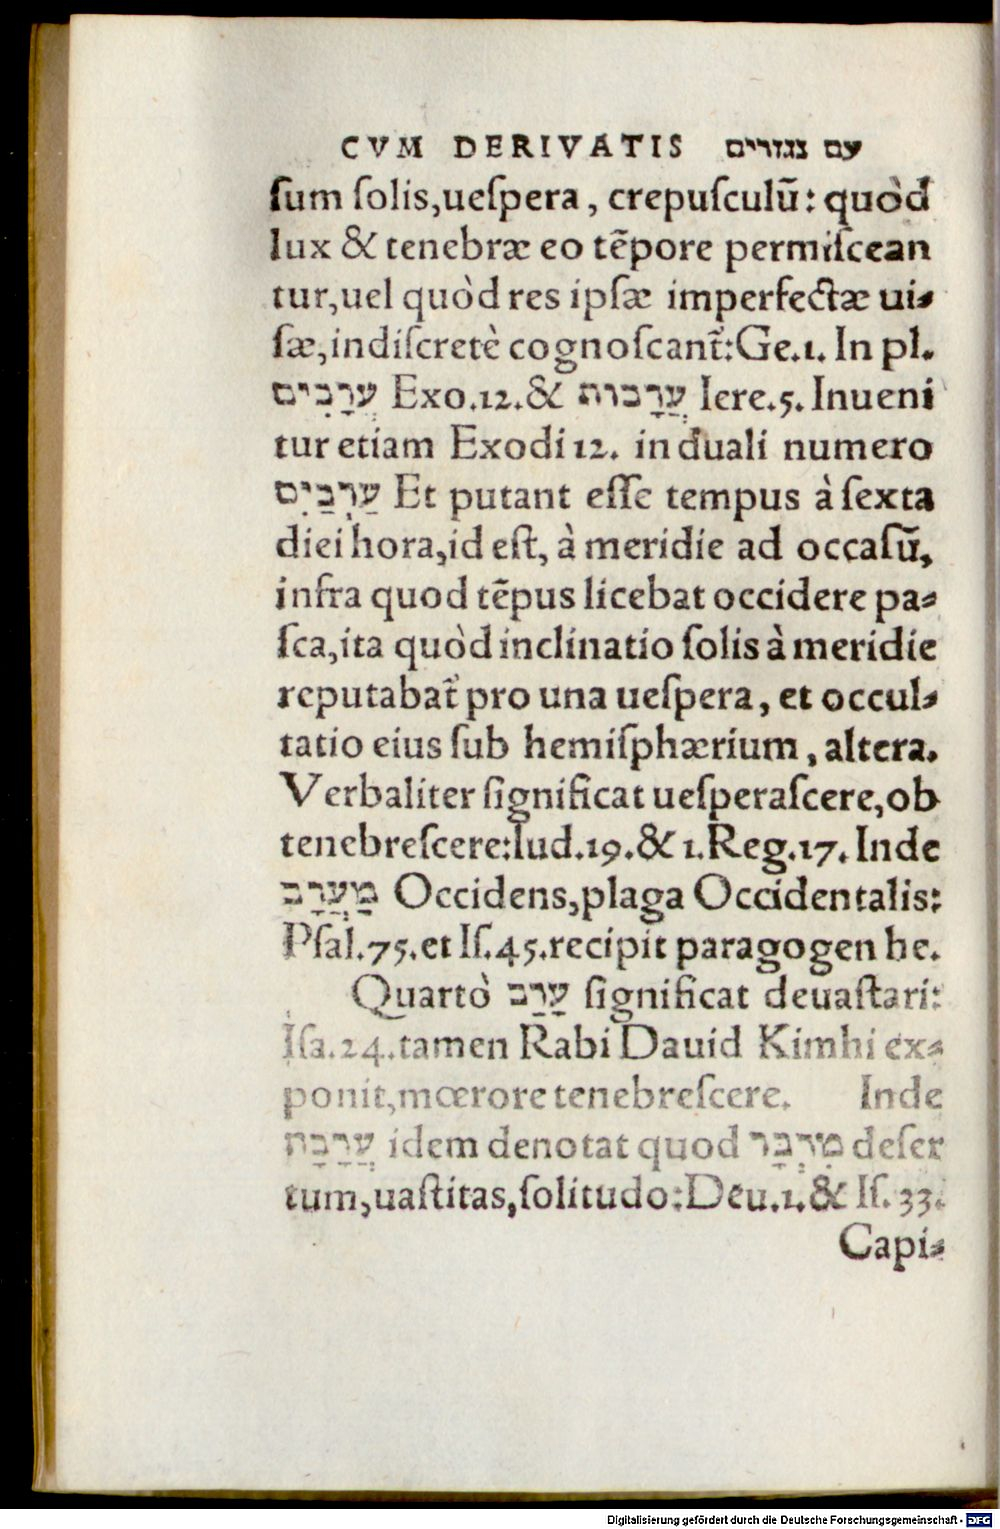 CVM DERIVATIS עם נגזרים
ſum ſolis,ueſpera, crepuſculū: quòd
lux & tenebræ eo tēpore permiſcean
tur,uel quòd res ipſæ imperfectæ ui⸗
ſæ,indiſcretè cognoſcant̃:Ge.1. In pl.
עֲרָבִים Exo.12.& עֲרָבוֹת Iere.5. Inueni
tur etiam Exodi 12. in duali numero
עַרְבַּיִם Et putant eſſe tempus à ſexta
diei hora,id eſt, à meridie ad occaſū,
infra quod tēpus licebat occidere pa⸗
ſca,ita quòd inclinatio ſolis à meridie
reputabat̃ pro una ueſpera, et occul⸗
tatio eius ſub hemiſphærium, altera.
Verbaliter ſignificat ueſperaſcere,ob
tenebreſcere:Iud.19.& 1.Reg.17. Inde
מַעֲרָב Occidens,plaga Occidentalis:
Pſal.75.et Iſ.45.recipit paragogen he.
Quartò עָרַב ſignificat deuaſtari:
Iſa.24.tamen Rabi Dauid Kimhi ex⸗
ponit,mœrore tenebreſcere. Inde
עֲרָבָה idem denotat quod מִדְבָּר deſer
tum,uaſtitas,ſolitudo:Deu.1.& Iſ.33.
Capi⸗
Digitalisierung gefördert durch die Deutsche Forschungsgemeinschaft - DFG